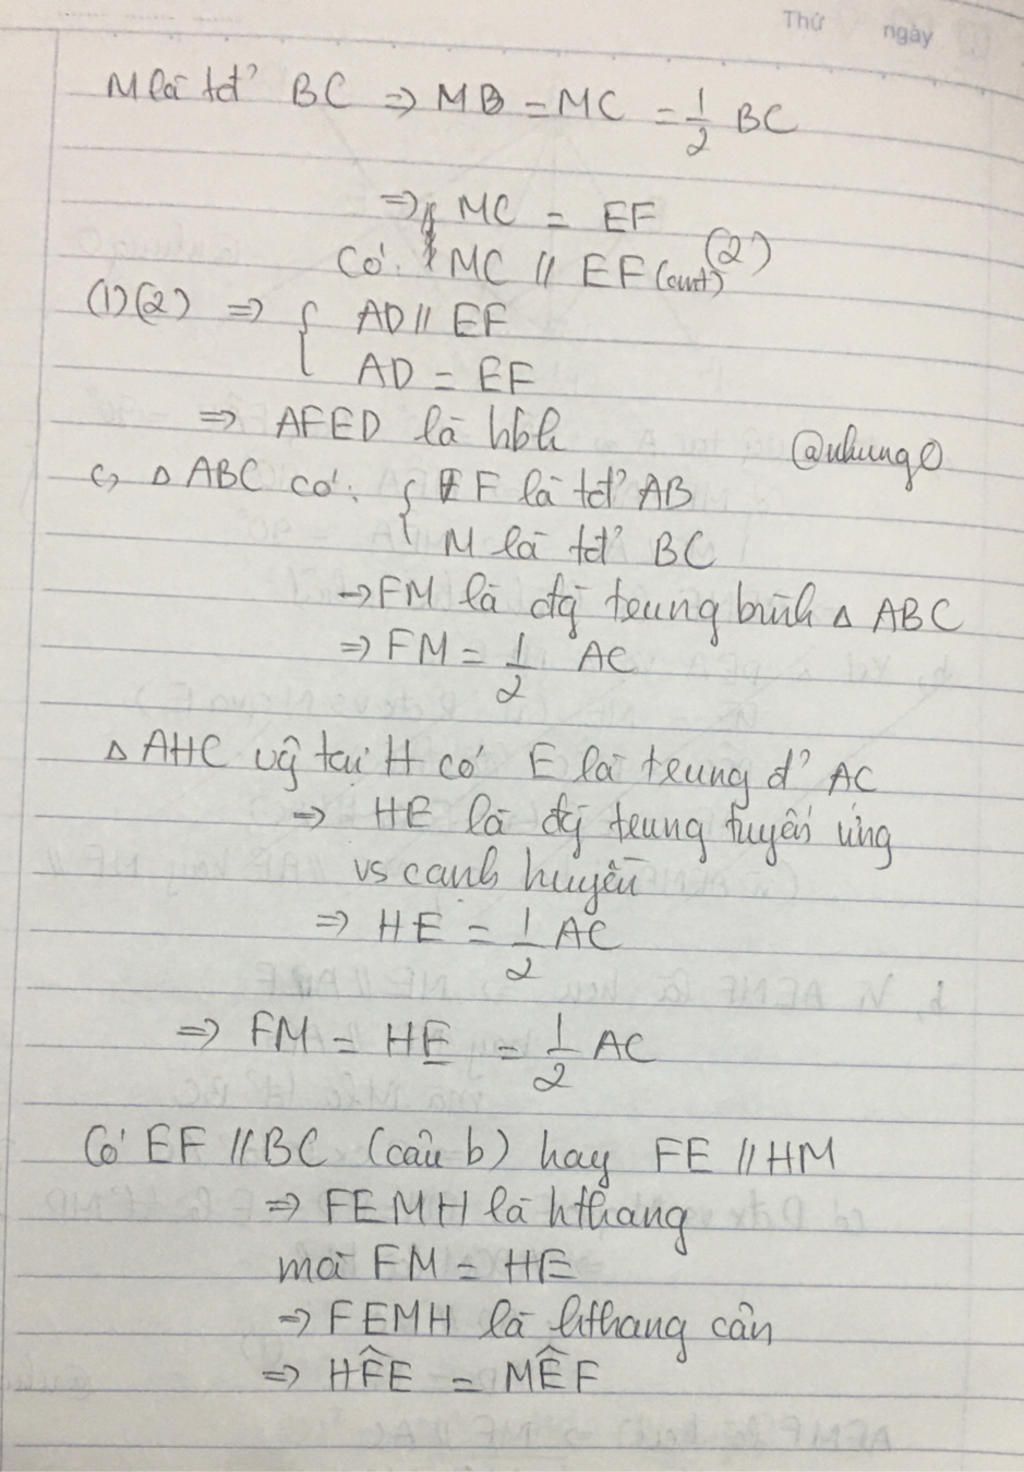 Thứ ngày
M là tđ' BC => MB = MC = 1/2 BC
=> { MC = EF
Có: { MC // EF (cmt) (2)
(1)(2) => { AD // EF
AD = EF
=> AFED là hbh
@nhung0
c, △ ABC có: { F là tđ' AB
M là tđ' BC
-> FM là đg trung bình △ ABC
=> FM = 1/2 AC
△ AHC vg tại H có E là trung đ' AC
=> HE là đg trung tuyến ứng
vs cạnh huyền
=> HE = 1/2 AC
=> FM = HE = 1/2 AC
Có EF // BC (câu b) hay FE // HM
=> FEMH là hthang
mà FM = HE
=> FEMH là hthang cân
=> HF̂E = MÊF